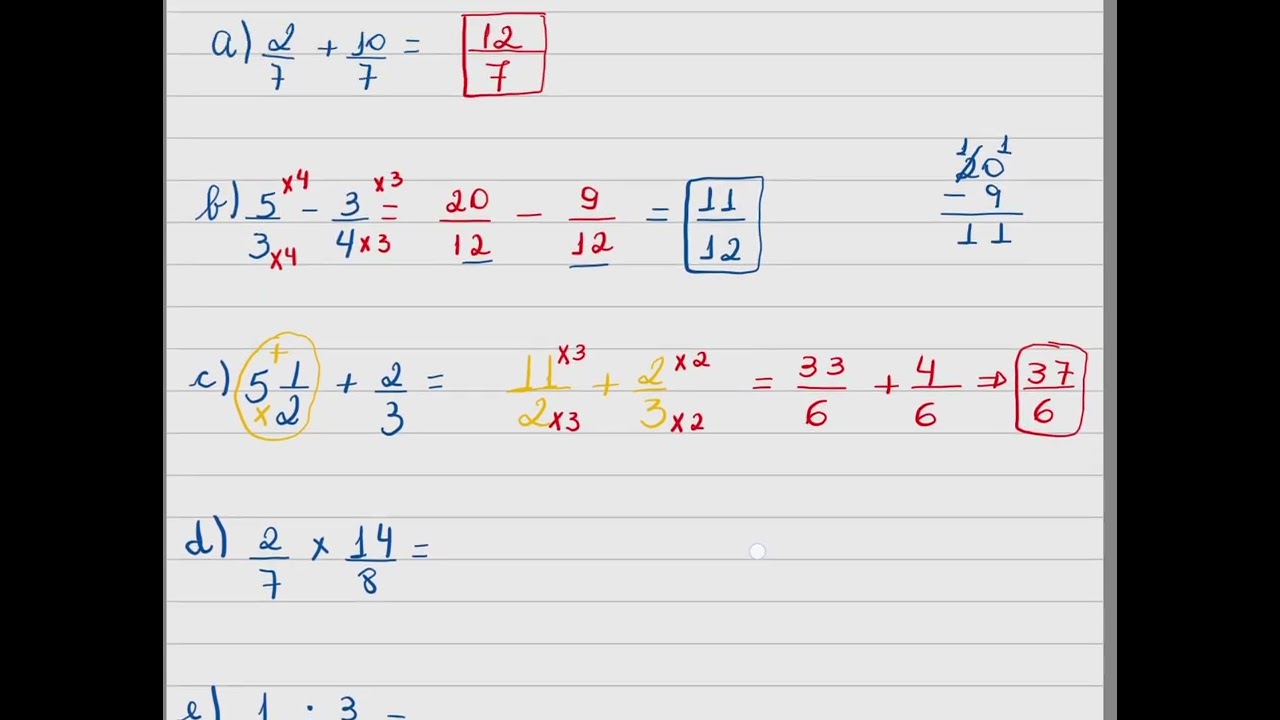 a) 2/7 + 10/7 = 12/7
b) 5/3 ×4/×4 - 3/4 ×3/×3 = 20/12 - 9/12 = 11/12
20 - 9 11
1 1
c) 5 1/2 + × + 2/3 = 11/2 ×3/×3 + 2/3 ×2/×2 = 33/6 + 4/6 ⇒ 37/6
d) 2/7 × 14/8 =
e) 1 : 3 =